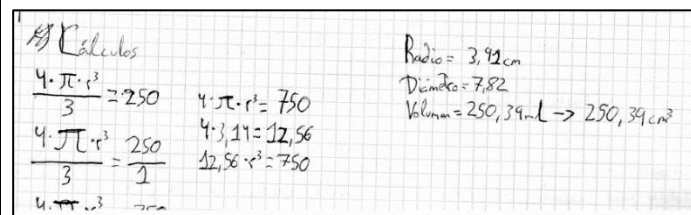 Cálculos
4·π·r³/3 = 250
4·π·r³/3 = 250/1
4·π·r³
4·π·r³ = 750
4·3,14 = 12,56
12,56·r³ = 750
Radio = 3,91cm
Diámetro = 7,82
Volumen = 250,39mL → 250,39cm³